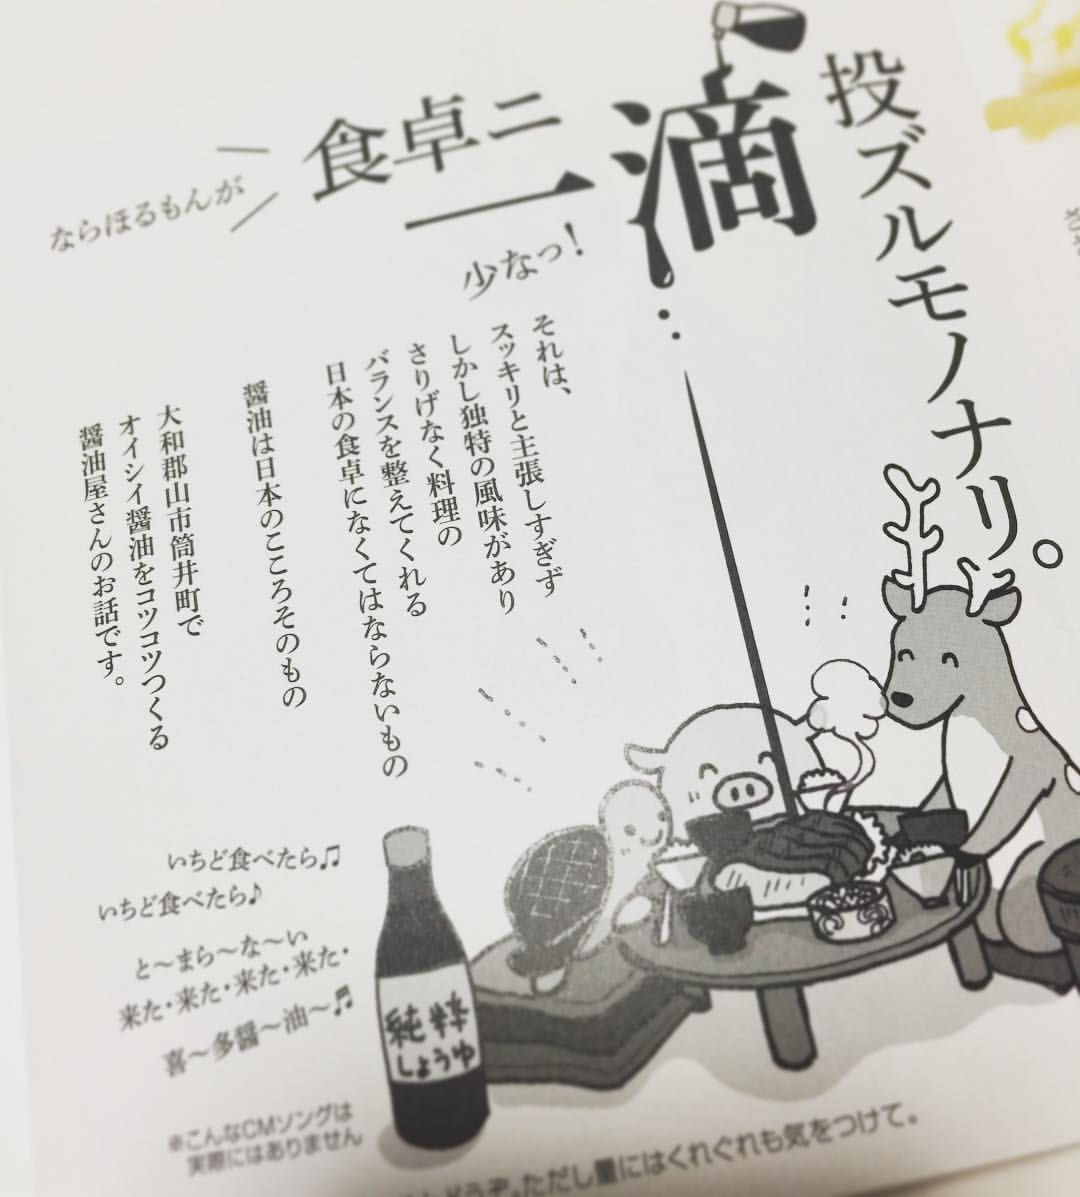 ならほるもんが
食卓ニ
一滴
投ズルモノナリ。
少なっ！
それは、
スッキリと主張しすぎず
しかし独特の風味があり
さりげなく料理の
バランスを整えてくれる
日本の食卓になくてはならないもの
醤油は日本のこころそのもの
大和郡山市筒井町で
オイシイ醤油をコツコツつくる
醤油屋さんのお話です。
いちど食べたら♫
いちど食べたら♪
と〜まら〜な〜い
来た・来た・来た・来た・
喜〜多醤〜油〜♬
※こんなCMソングは
実際にはありません
純粋
しょうゆ
どうぞ。ただし量にはくれぐれも気をつけて。